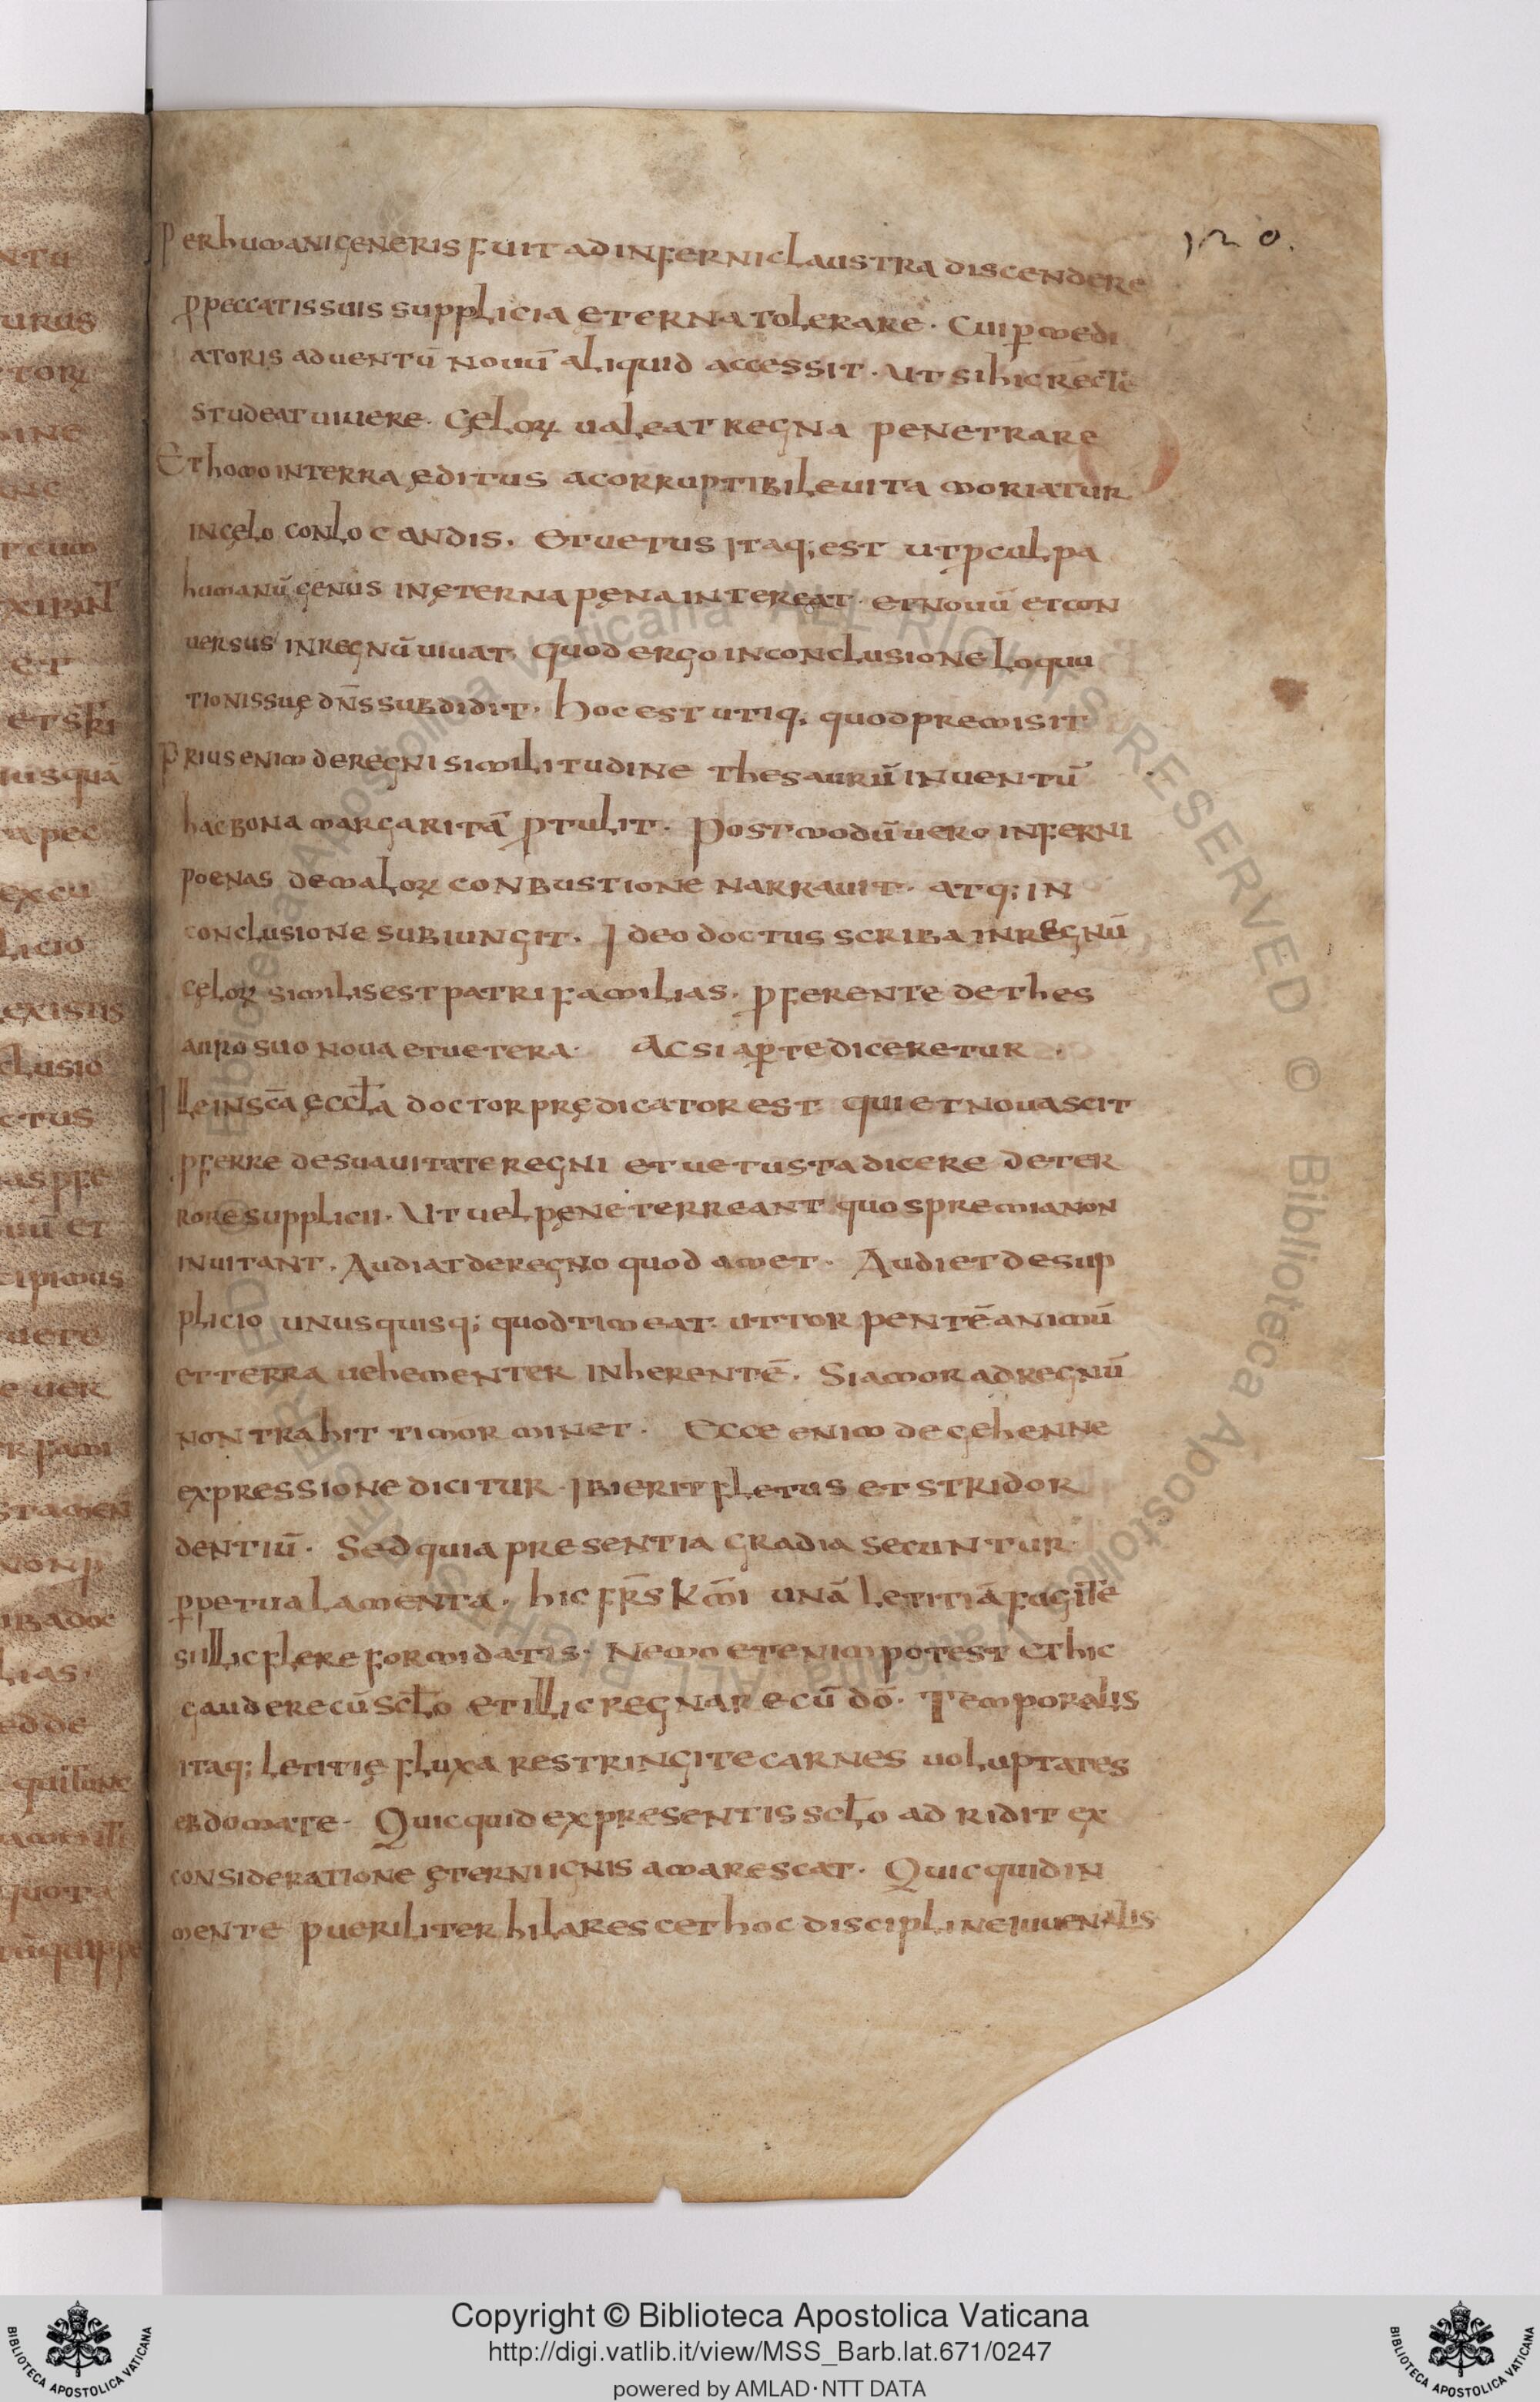 120.
Per humani generis fuit ad inferni claustra discendere
p̱ peccatis suis supplicia eterna tolerare · Cui p̱ medi
atoris aduentū nouū aliquid accessit · Ut si hic recte
studeat uiuere · Çeloꝝ ualeat regna penetrare
Et homo in terra ęditus a corruptibile uita moriatur
in cęlo conlocandis . Et uetus itaq; est ut p culpa
humanū genus in ęterna pęna intereat · et nouū et con
uersus in regnū uiuat. Quod ergo in conclusione loquu
tionis suę dn̄s subdidit · hoc est utiq, quod premisit
Prius enim de regni similitudine thesaurū inuentū
hac bona margaritā ꝓtulit · Postmodū uero inferni
poenas de maloꝝ conbustione narrauit · atq; in
conclusione subiungit · Ideo doctus scriba in regnū
cęloꝝ similis est patri familias · ꝓferente de thes
auro suo noua et uetera · Ac si aꝑte diceretur ·
Ille in sc̄a ęccła doctor prędicator est qui et noua scit
ꝓferre de suauitate regni et uetusta dicere de ter
rore supplicii · Ut uel pęne terreant quos premia non
inuitant . Audiat de regno quod amet · Audiet de sup
plicio unusquisq; quod timeat · ut torpentē animū
et terra uehementer inherentē · Si amor ad regnū
non trahit timor minet · Ecce enim de gehenne
expressione dicitur · Ibi erit fletus et stridor
dentiū · Sed quia presentia gradia secuntur
ꝑpetua lamenta · hic fr̄s km̄i unā letitiā fugite
si illic flere formidatis · Nemo etenim potest et hic
gaudere cū scło et illic regnare cū dō · Temporalis
itaq; letitię fluxa restringite carnes uoluptates
ebdomate · Quicquid ex presentis scło adridit ex
consideratione ęterni ignis amarescat · Quicquid in
mente pueriliter hilarescet hoc discipline iuuenalis
Copyright © Biblioteca Apostolica Vaticana
http://digi.vatlib.it/view/MSS_Barb.lat.671/0247
powered by AMLAD·NTT DATA